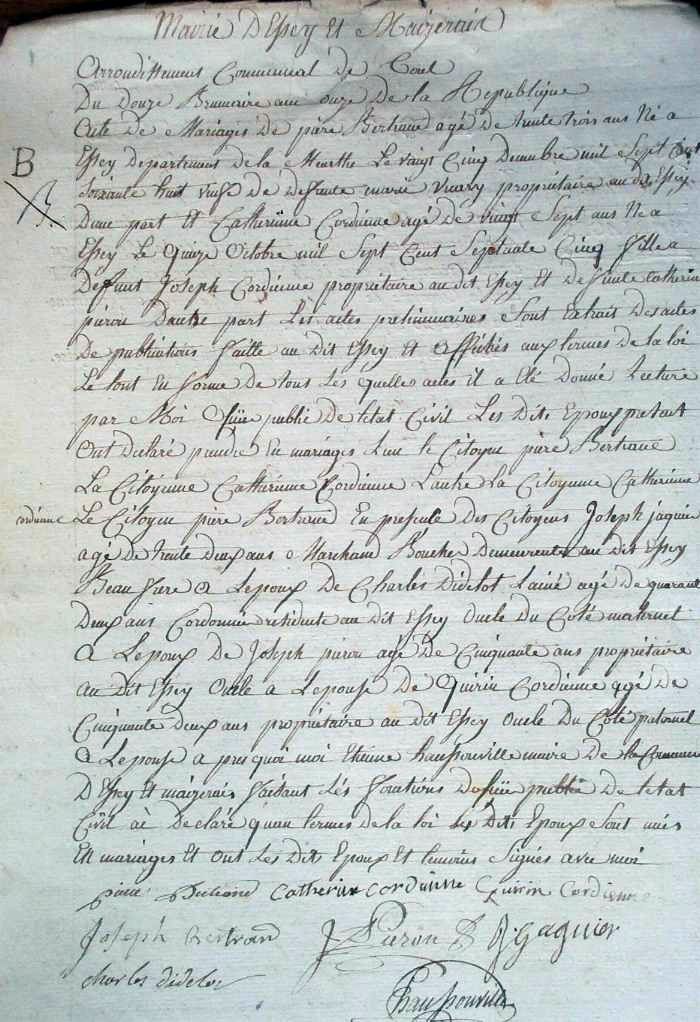 Mairie D'Essey Et Maizerais
Arrondissement Communal de Toul
Du Douze Brumaire ans onze De la Republique
Acte De Mariages De piere Bertrand agé de trente trois ans Né a
B
Essey Departement de la Meurthe Le vingt Cinq Decembre mil Sept Cent
Soixante huit veufs De deffunte marie propriétaire au dit Essey
B.
Dune part Et Catherinne Cordienne agé De vingt Sept ans Né a
Essey Le Quinze Octobre mil Sept Cent Septente Cinq fille a
Deffunt Joseph Cordienne propriétaire au dit Essey Et deffunte Catherin
pierou Dautre part Les actes preliminaires Sont Extrait des actes
De publications faitte au Dit Essey Et affichés aux termes de la loi
Le tout En forme De tous Les quelles actes il a Eté Donné Lecture
par Moi publié De letat Civil Les Dits Epoux
Ont declaré prendre En mariages Lun le Citoyen piere Bertrand
La Citoyenne Catherinne Cordienne Lautre La Citoyenne Catherinne
cordienne Le Citoyen piere Bertrand En presence Des Citoyens Joseph jaquier
agé de trente deux ans Marchand Boucher Demeurent au dit Essey
Beau frere a Lepoux De Charles Didelot Lainé agé De quarante
Deux ans Cordonnier residente au dit Essey Oncle Du Coté maternel
a Lepoux De Joseph pierou agé De Cinquante ans propriétaire
au dit Essey Oncle a Lepouse De Quirin Cordienne agé De
Cinquante deux ans propriétaire au dit Essey Oncle Du Coté paternel
a Lepouse a pres quoi moi Etienne haussonville maire De la Commune
D'Essey Et maizerais faidant Les De publié De letat
Civil ai Declaré quan termes de la loi Les Dits Epoux Sont unis
En mariages Et ont Les dits Epoux Et temoins Signés avec moi
piere Bertrand Catherin cordienne Quirin Cordienne
Joseph Bertrand J Pieron J. Gaguier
charles didelot
haussonville